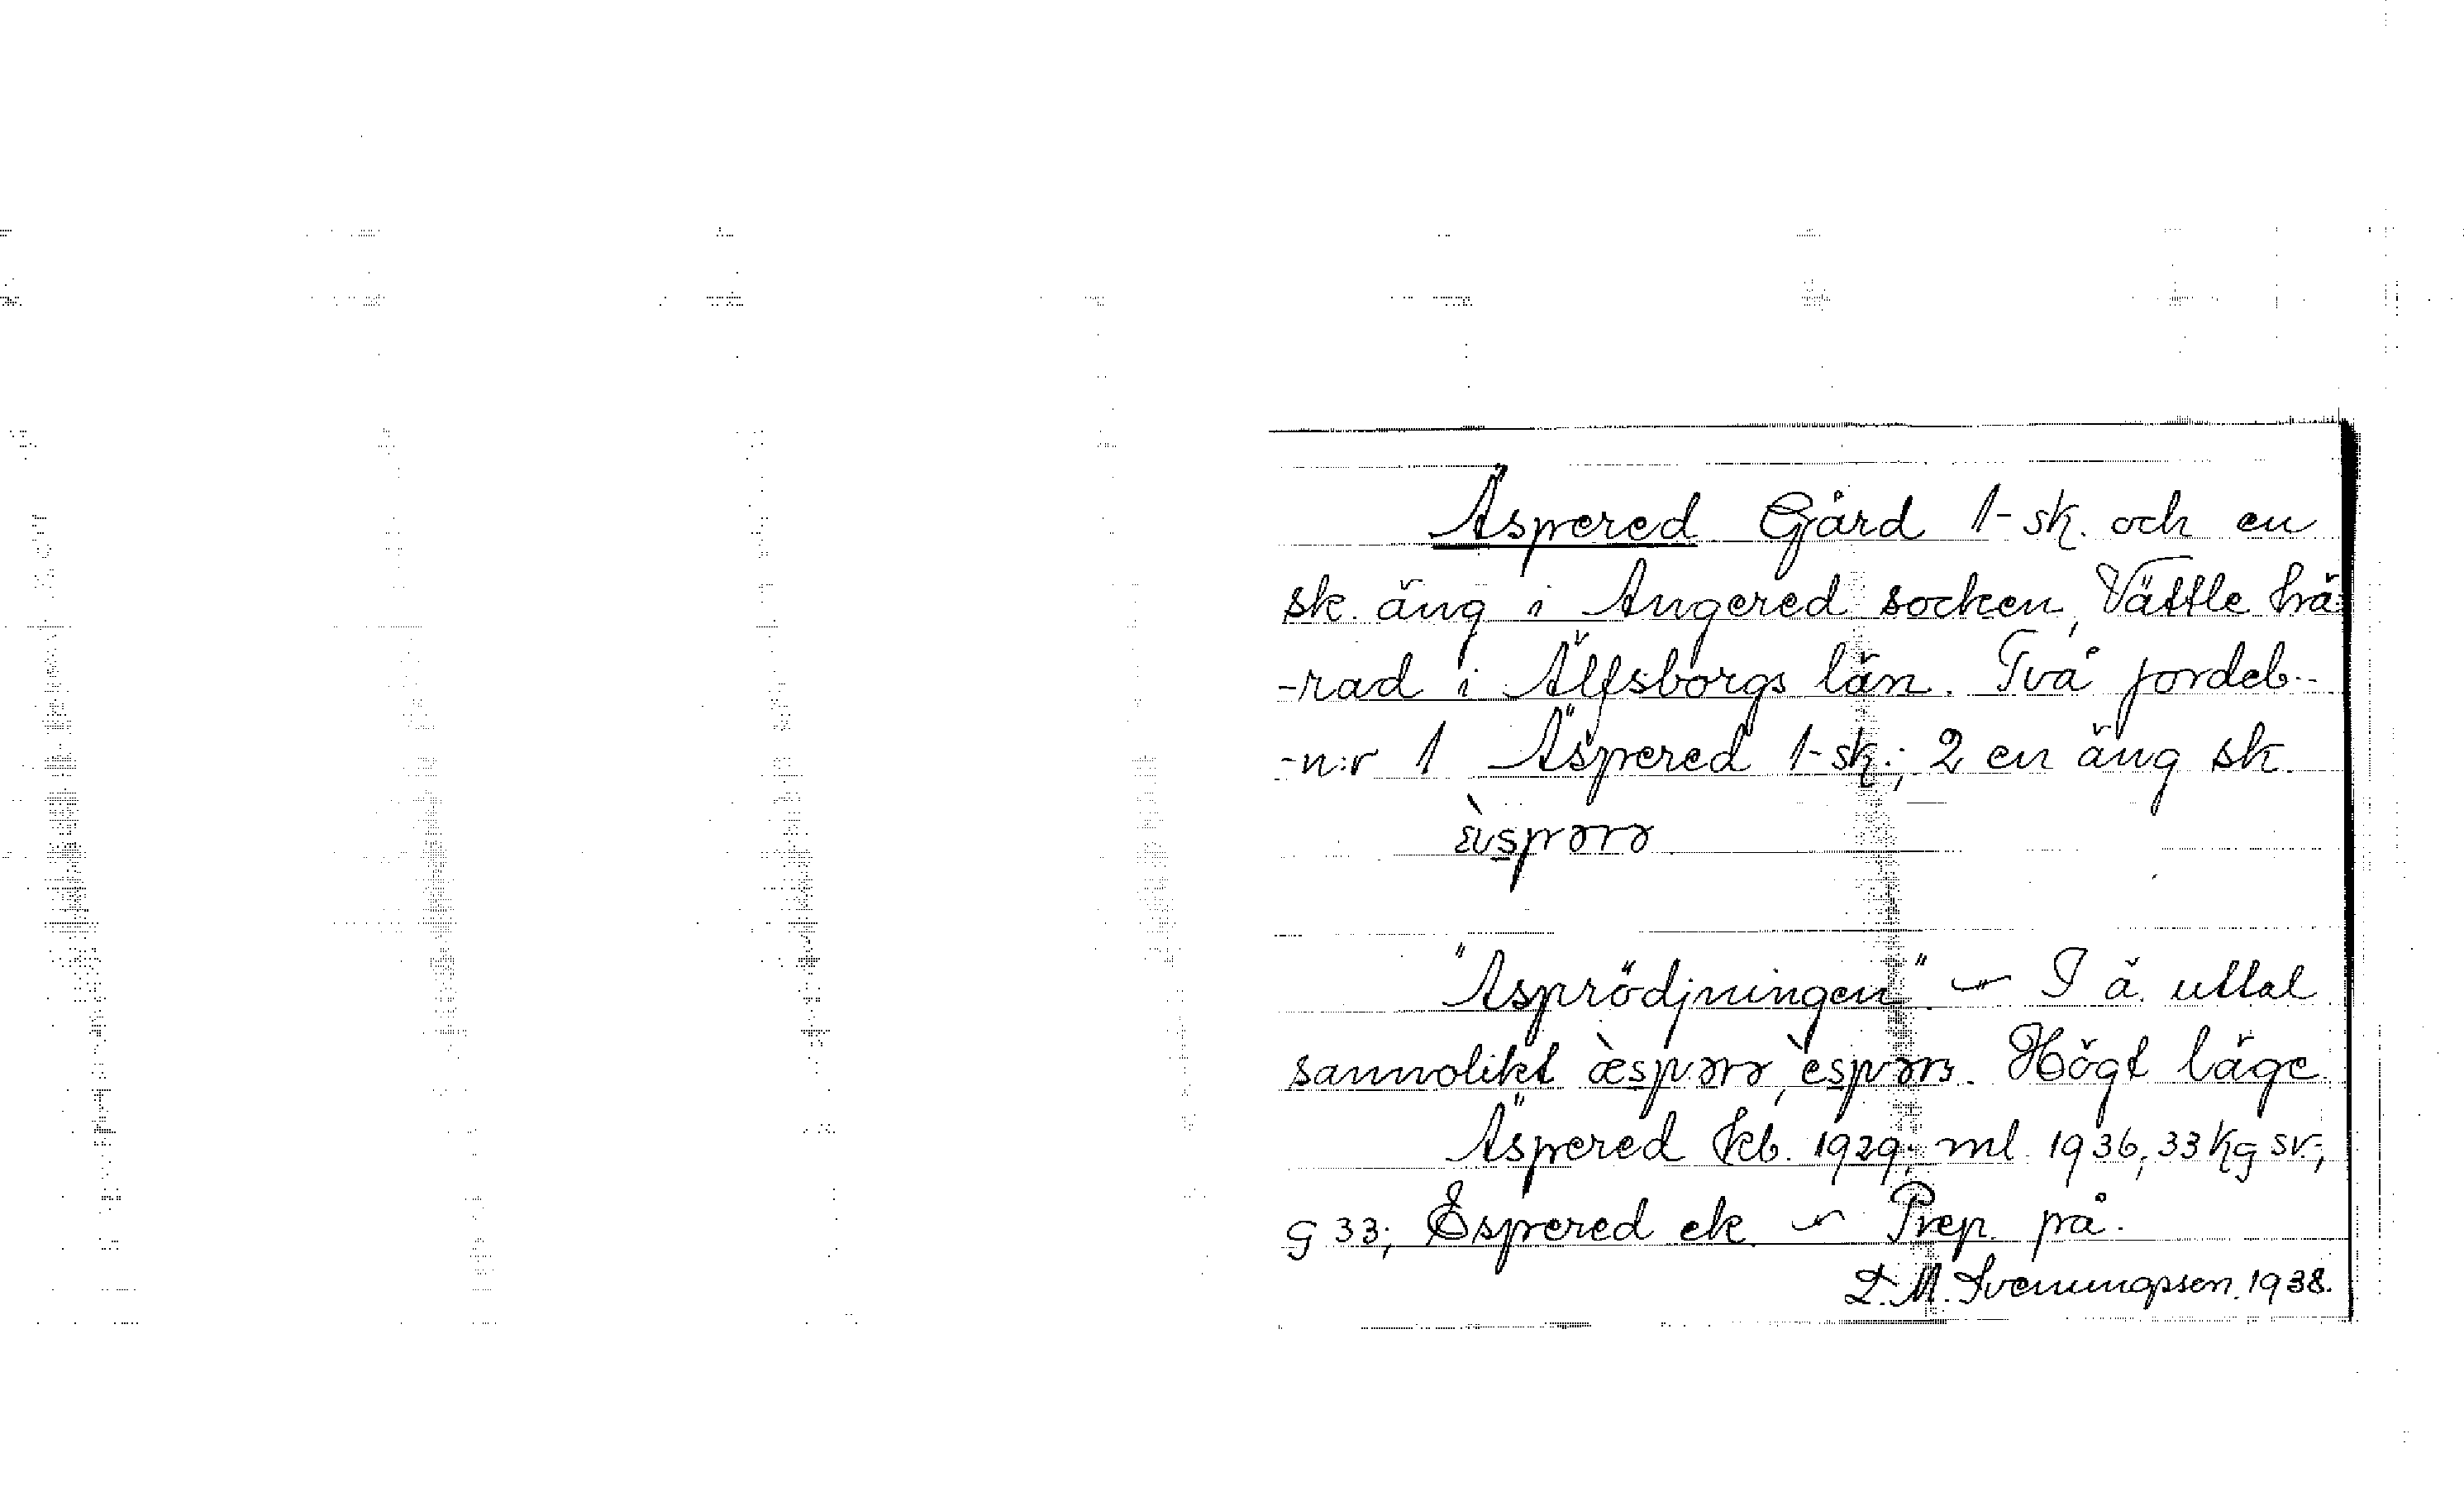 Äspered Gård 1-sk. och en
sk. äng i Angered socken, Vättle hä
-rad i Älfsborgs län. Två jordeb.-
-n:r 1 Äspered 1-sk.; 2 en äng sk.
"Asprödjningen" ~ I ä. uttal
sannolikt Högt läge.
Äspered kb. 1929; ml. 1936, 33 Kg sv.;
G 33; Espered ek ~ Prep. på.
L. M. Svenungsson. 1938.